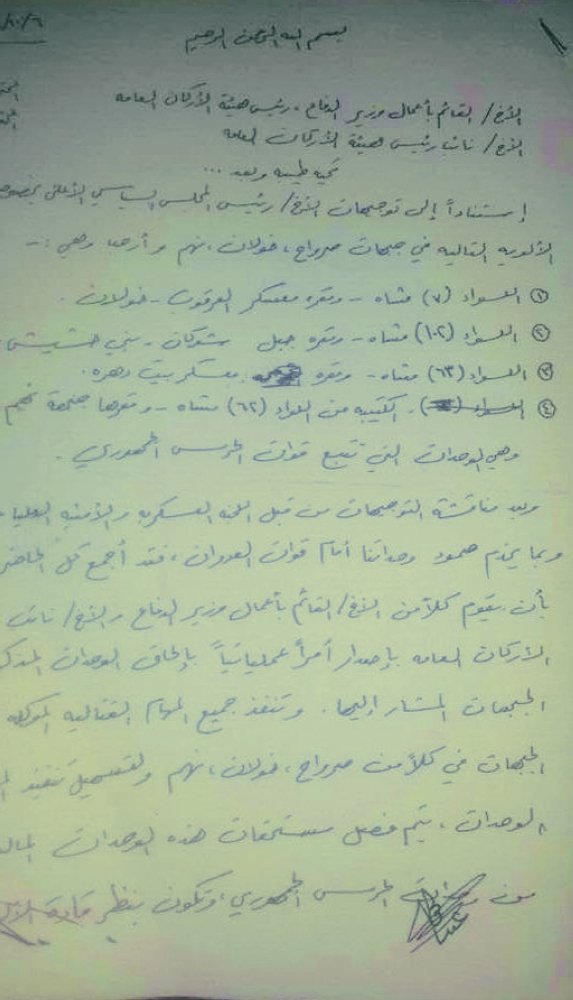 ٦/١٠/
بسم الله الرحمن الرحيم
الأخ/ القائم بأعمال وزير الدفاع، رئيس هيئة الأركان العامه
الأخ/ نائب رئيس هيئة الأركان العامه
تحيه طيبه وبعد ...
إستناداً إلى توجيهات الأخ/ رئيس المجلس السياسي الأعلى بخصوص
الألويه القتاليه في جبهات صرواح، خولان، نهم وأرحب وهي :-
① اللواء (٧) مشاه - ومقره معسكر العرقوب - خولان .
② اللواء (١٠٢) مشاه - ومقره جبل شوكان - بني حشيش
③ اللواء (٦٣) مشاه - ومقره معسكر بيت دهره .
④ الكتيبه من اللواء (٦٢) مشاه - ومقرها جبهة نهم
وهي الوحدات التي تتبع قوات الحرس الجمهوري .
وبعد مناقشة التوجيهات من قبل اللجنه العسكريه والأمنيه العليا
وبما يخدم صمود وحداتنا أمام قوات العدوان، فقد أجمع كل الحاضر
بأن يقوم كلاً من الأخ/ القائم بأعمال وزير الدفاع والأخ/ نائب
الأركان العامه بإصدار أمراً عملياتياً بإلحاق الوحدات المذك
الجبهات المشار إليها . وتنفذ جميع المهام القتاليه الموكله
الجبهات في كلاً من صرواح، خولان، نهم ولتسهيل تنفيذ
الوحدات، يتم فصل مستحقات هذه الوحدات الماليه
من الحرس الجمهوري، وتكون بنظر قادة